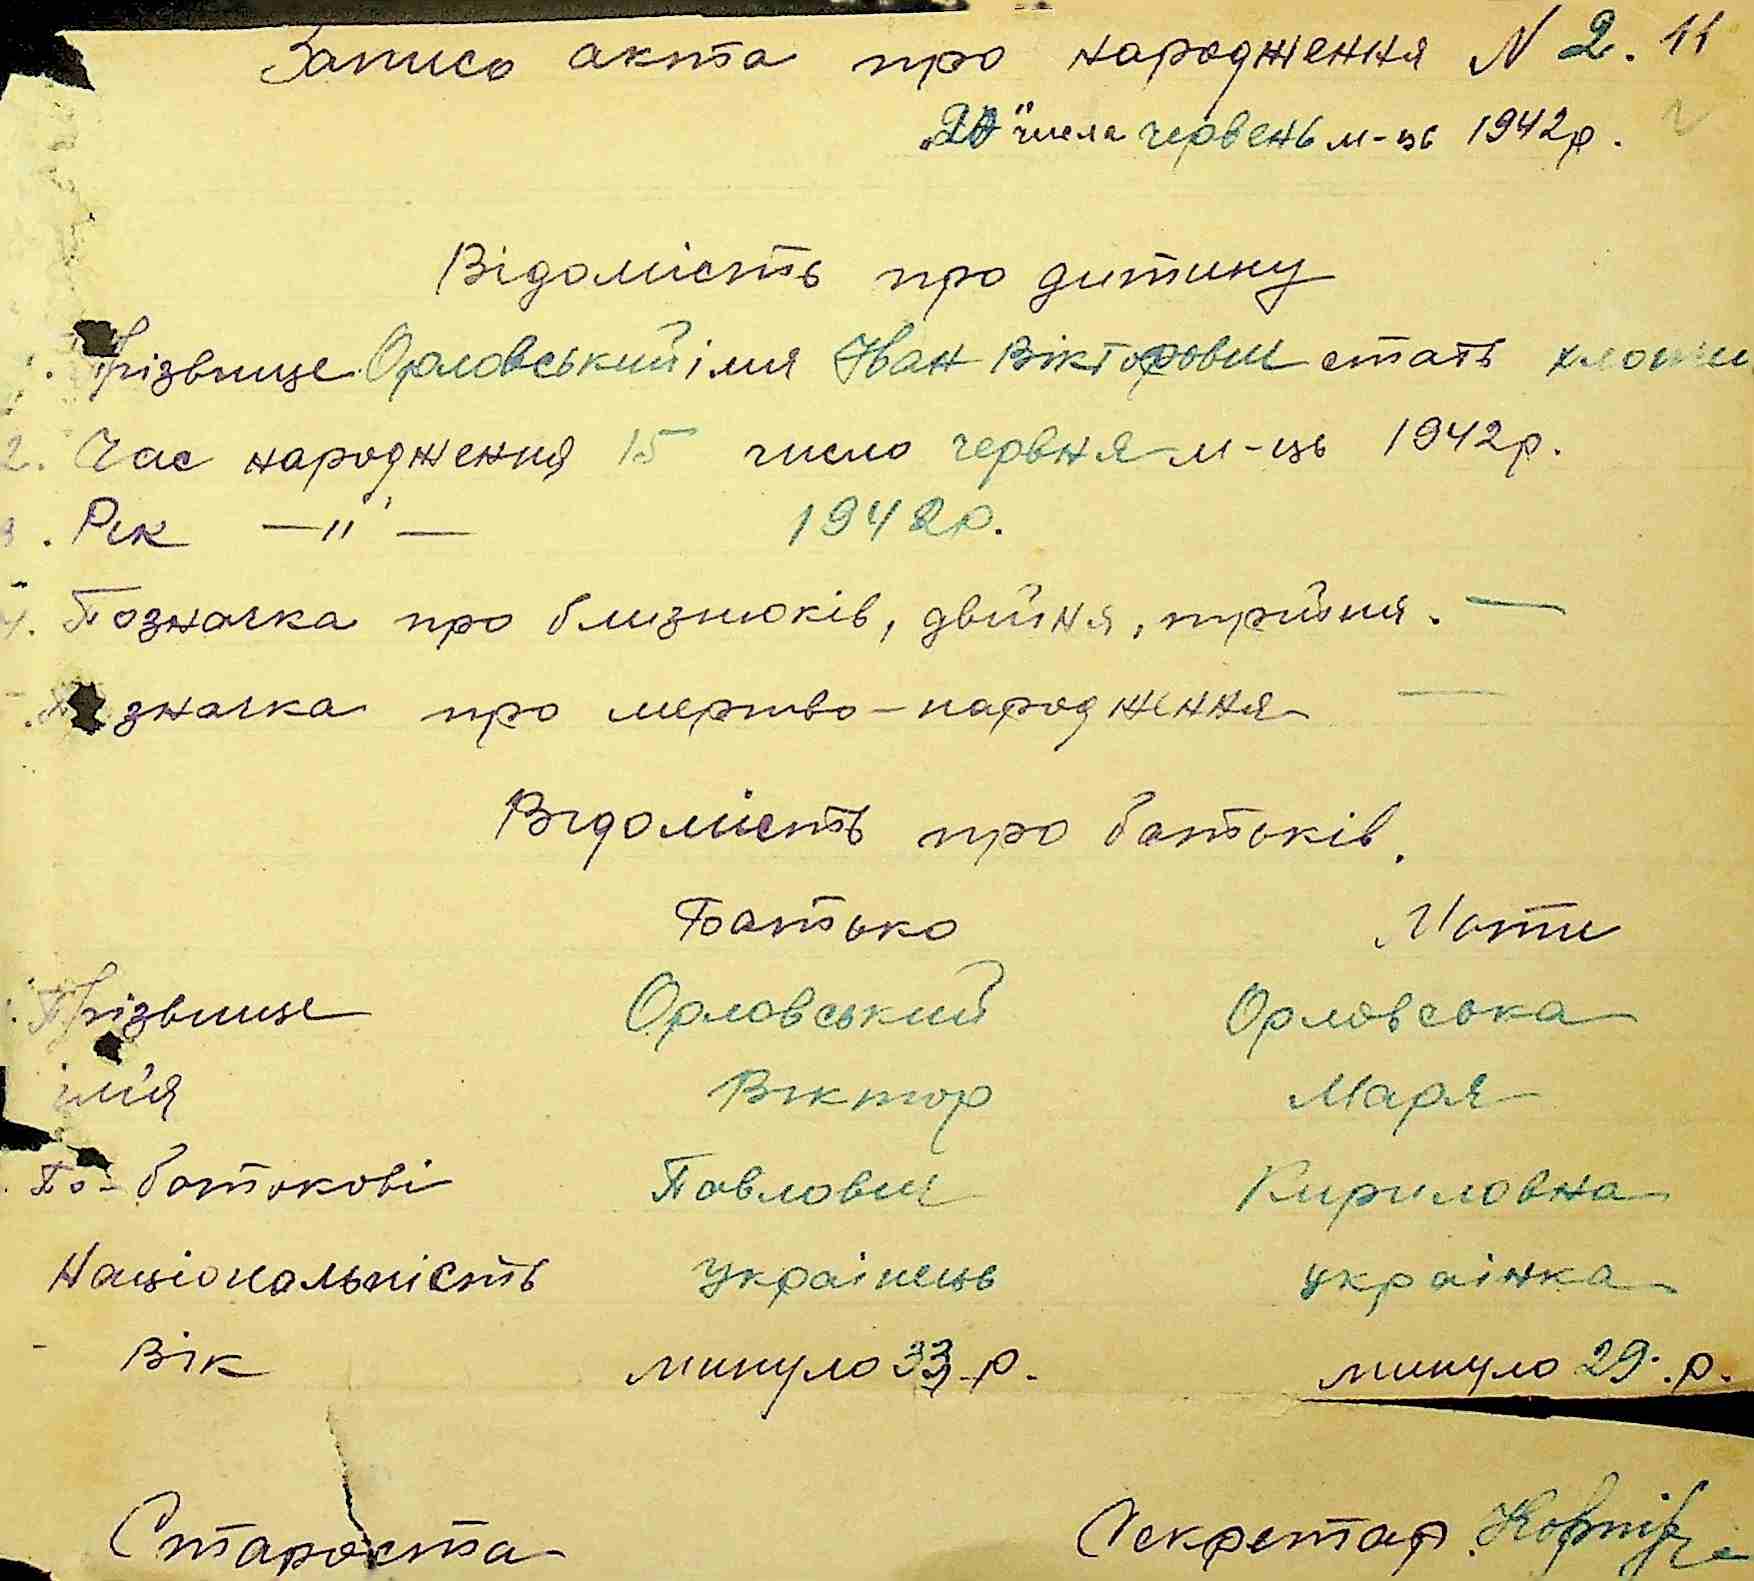 Запись акта про народження N 2. 11
"20" числа червень м-ць 1942р.
Відомість про дитину
1. Прізвище Орловський імя Іван Вікторович стать хлопч
2. Час народження 15 число червня м-ць 1942р.
3. Рік — " — 1942р.
4. Позначка про близнюків, двійня, трійня. —
Позначка про мертво-народження —
Відомість про батьків.
Батько Мати
Прізвище Орловський Орловська
імя Віктор Маря
По-батькові Павлович Кириловна
Національність Українець українка
Вік минуло 33 р. минуло 29. р.
Староста Секретар